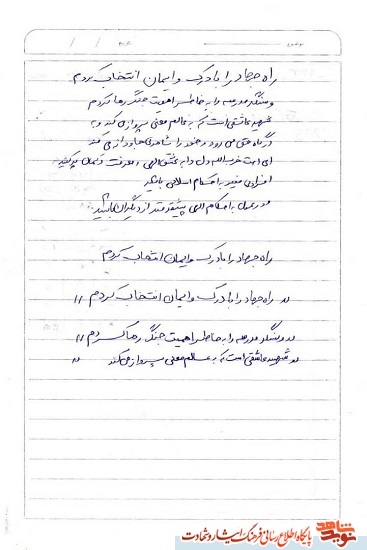 راه جهاد را با درک و ایمان انتخاب کردم
و سنگر مدرسه را به خاطر اهمیت جنگ رها کردم
شهید عاشقی است که به عالم معنی پرواز می کند و به
درگاه حق می رود و خود را
ای امت حزب الله دل را به عشق الهی و معرفت و
افرادی مقید به احکام اسلامی باشید
و در عمل به احکام الهی پیشقدمتر از دیگران باشید
راه جهاد را با درک و ایمان انتخاب کردم
راه جهاد را با درک و ایمان انتخاب کردم //
و سنگر مدرسه را به خاطر اهمیت جنگ رها کردم //
شهید عاشقی است که به عالم معنی پرواز می کند //
نوید شاهد
پایگاه اطلاع رسانی فرهنگ ایثار و شهادت